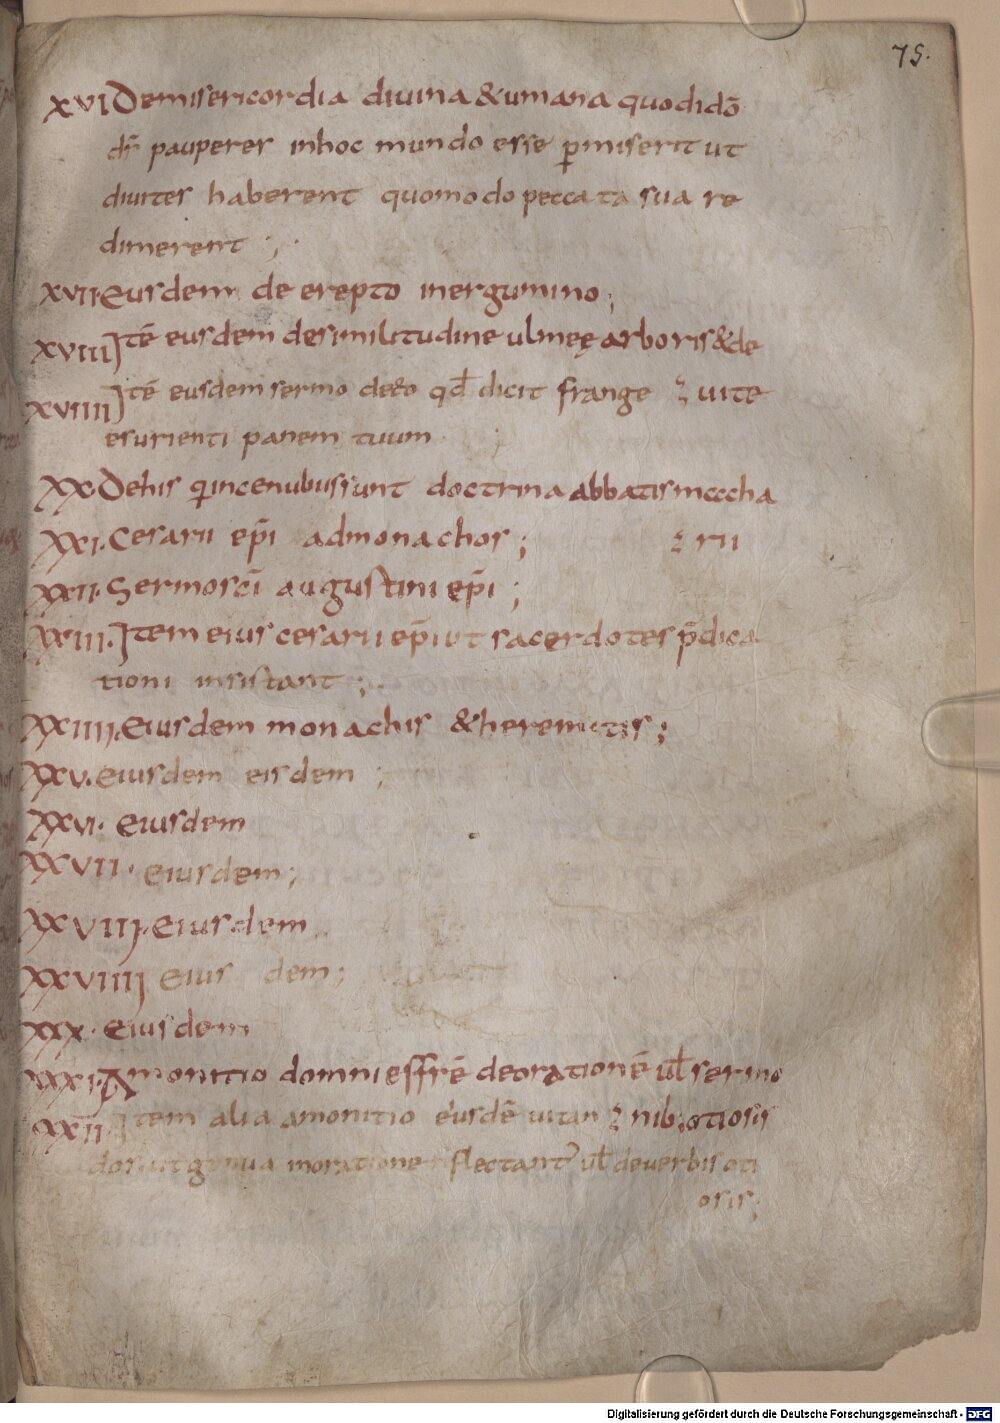 75.
XVI Demisericordia diuina & umana quodidō
dr̄ pauperes inhoc mundo esse p̄miserit ut
diuites haberent quomodo peccata sua re
dimerent ;
XVII. Eiusdem de erepto inergumino ;
XVIII Itē eiusdem desimilitudine ulmeę arboris & de
XVIIII Itē eiusdem sermo deeo qđ dicit frange uite
esurienti panem tuum
XX. Dehis qui incenubiis sunt doctrina abbatis maccha
XXI. Cesarii ep̄i admonachos ; rii
XXII. Sermo sc̄i augustini ep̄i ;
XXIII. Item eius cesarii ep̄i ut sacerdotes p̄dica
tioni insistant ;
XXIIII. Eiusdem monachis & heremitis ;
XXV. eiusdem eisdem ;
XXVI. eiusdem
XXVII. eiusdem ;
XXVIII. Eiusdem
XXVIIII eiusdem ;
XXX. eiusdem
XXXI. Amonitio domni effrē deorationē ul̄ sermo
XXXII Item alia amonitio eiusdē uitan nib; otiosis
dos. ut genua inoratione flectant ul̄ deuerbis oti
osis;
Digitalisierung gefördert durch die Deutsche Forschungsgemeinschaft - DFG